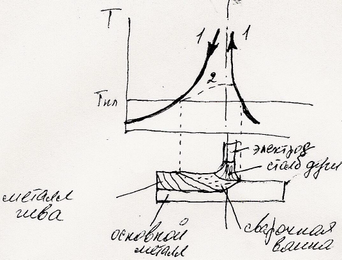 T
1
1
2
Tпл
электрод
столб дуги
металл
шва
основной
металл
сварочная
ванна